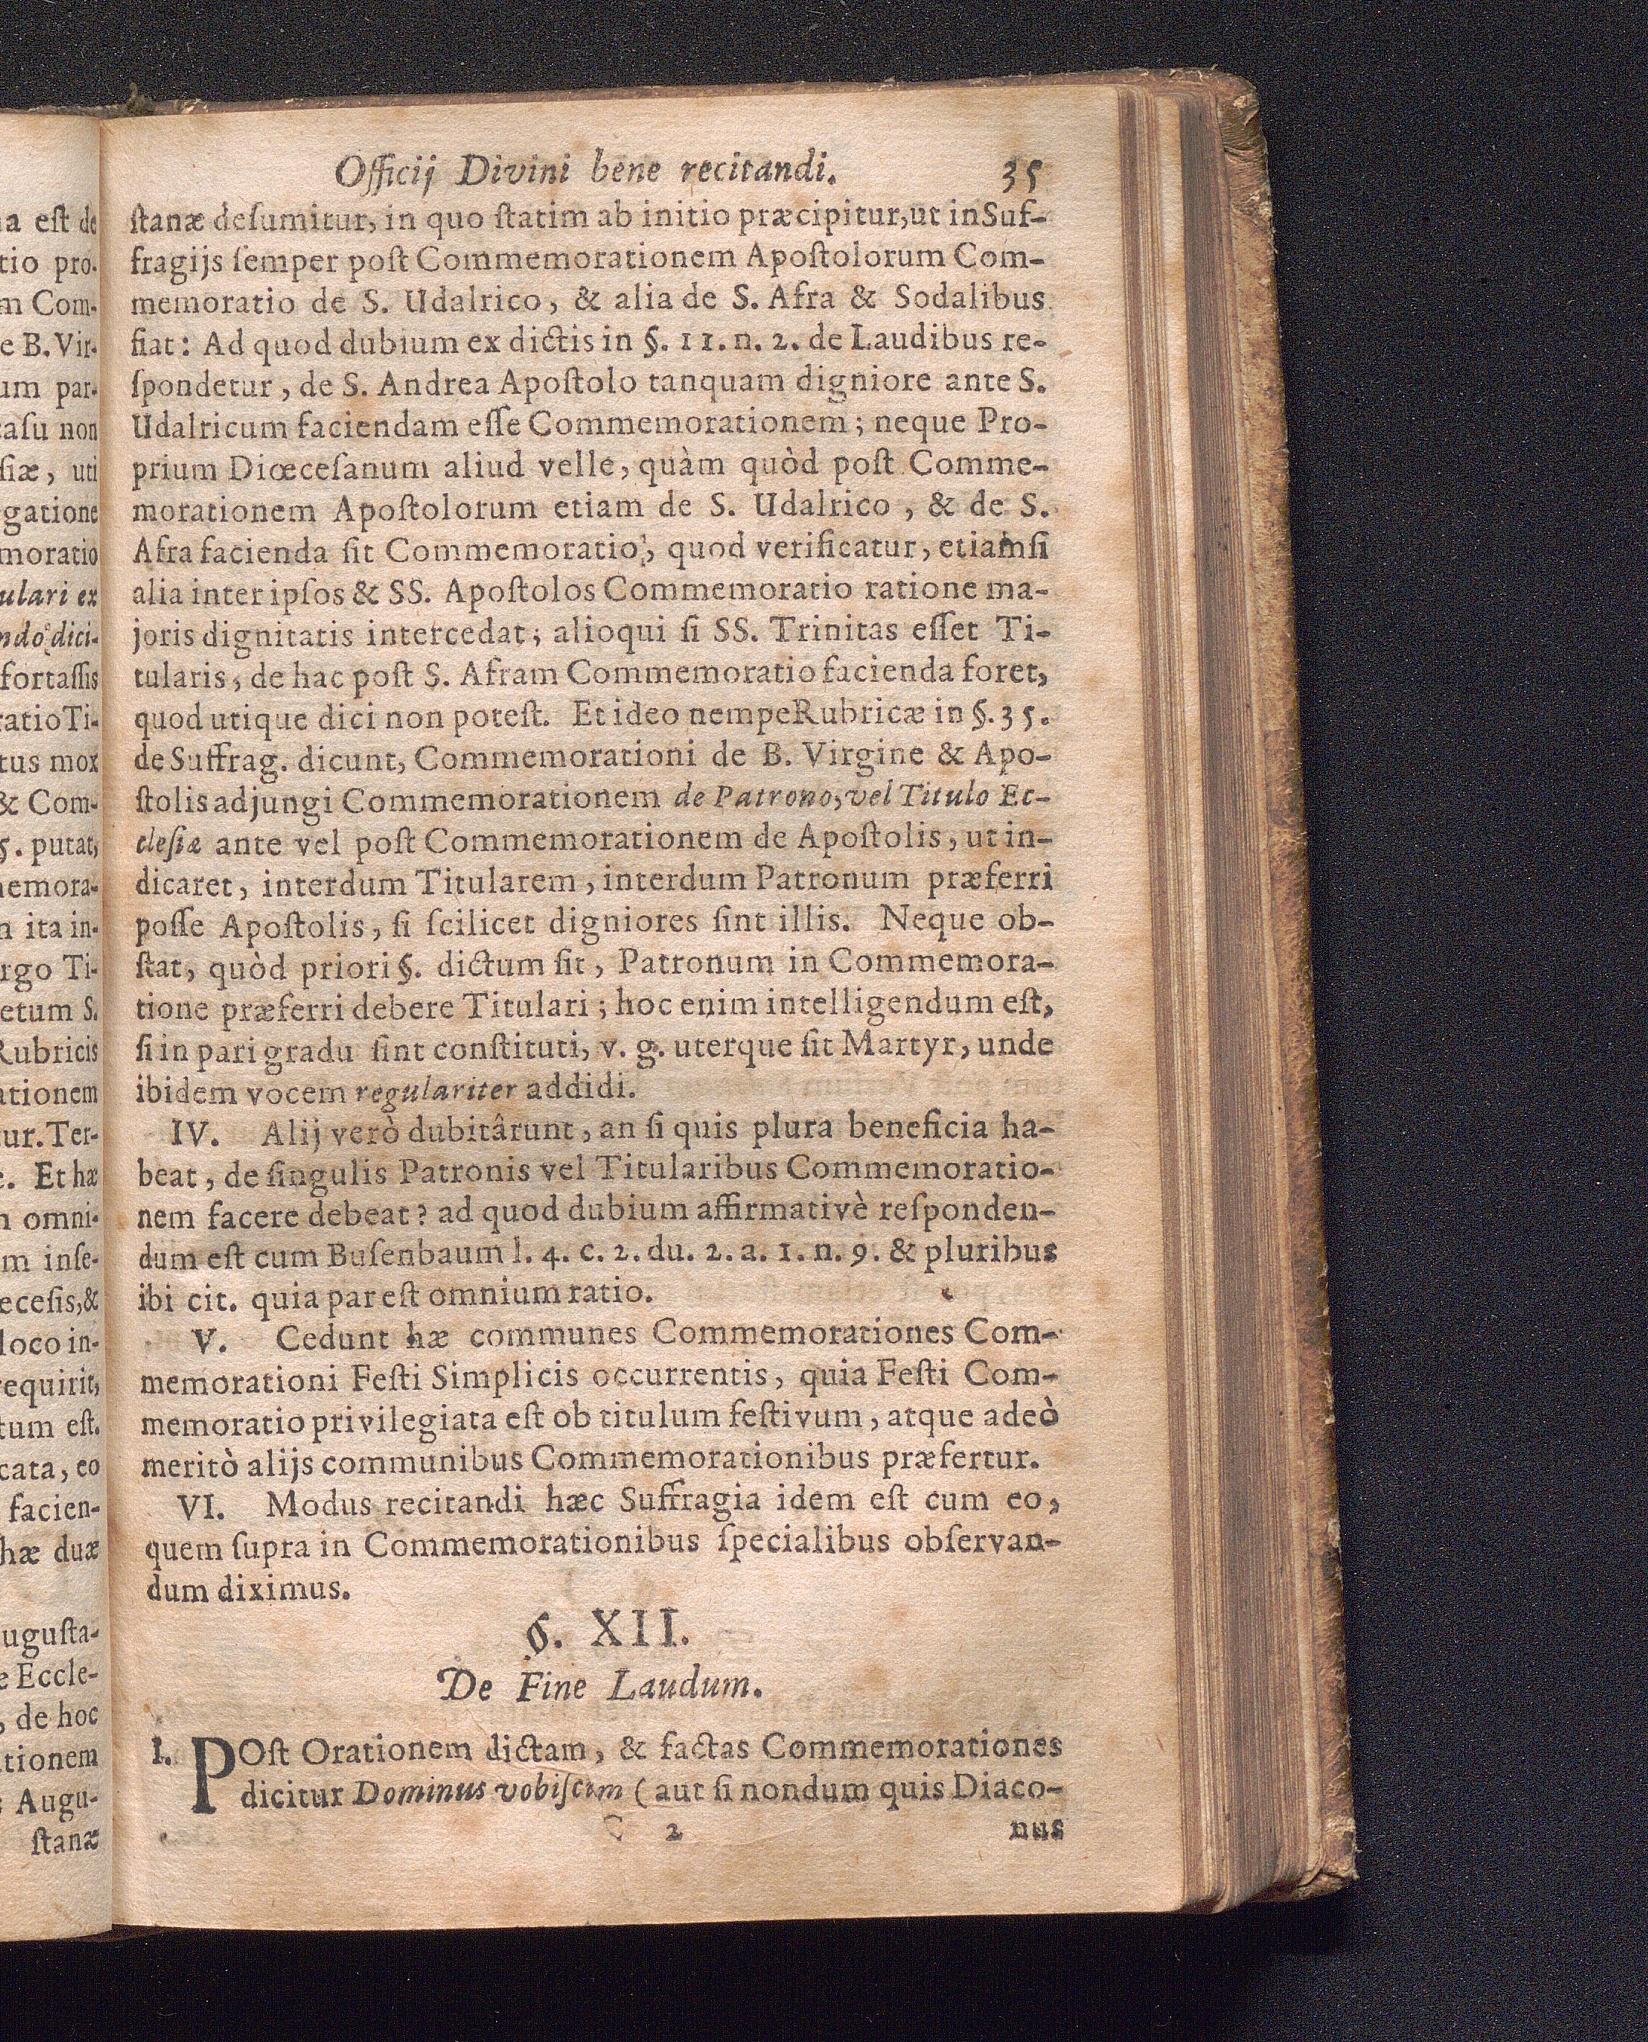 Officij Divini bene recitandi. 35
ſtanæ deſumitur, in quo ſtatim ab initio præcipitur, ut in Suf-
fragijs ſemper poſt Commemorationem Apoſtolorum Com-
memoratio de S. Udalrico, & alia de S. Afra & Sodalibus
fiat: Ad quod dubium ex dictis in §. 11. n. 2. de Laudibus re-
ſpondetur, de S. Andrea Apoſtolo tanquam digniore ante S.
Udalricum faciendam eſſe Commemorationem; neque Pro-
prium Diœceſanum aliud velle, quàm quòd poſt Comme-
morationem Apoſtolorum etiam de S. Udalrico, & de S.
Afra facienda ſit Commemoratio, quod verificatur, etiamſi
alia inter ipſos & SS. Apoſtolos Commemoratio ratione ma-
joris dignitatis intercedat; alioqui ſi SS. Trinitas eſſet Ti-
tularis, de hac poſt S. Afram Commemoratio facienda foret,
quod utique dici non poteſt. Et ideo nempe Rubricæ in §. 35.
de Suffrag. dicunt, Commemorationi de B. Virgine & Apo-
ſtolis adjungi Commemorationem de Patrono, vel Titulo Ec-
cleſiæ ante vel poſt Commemorationem de Apoſtolis, ut in-
dicaret, interdum Titularem, interdum Patronum præferri
poſſe Apoſtolis, ſi ſcilicet digniores ſint illis. Neque ob-
ſtat, quòd priori §. dictum ſit, Patronum in Commemora-
tione præferri debere Titulari; hoc enim intelligendum eſt,
ſi in pari gradu ſint conſtituti, v. g. uterque ſit Martyr, unde
ibidem vocem regulariter addidi.
IV. Alij verò dubitârunt, an ſi quis plura beneficia ha-
beat, de ſingulis Patronis vel Titularibus Commemoratio-
nem facere debeat? ad quod dubium affirmativè reſponden-
dum eſt cum Buſenbaum l. 4. c. 2. du. 2. a. 1. n. 9. & pluribus
ibi cit. quia par eſt omnium ratio.
V. Cedunt hæ communes Commemorationes Com-
memorationi Feſti Simplicis occurrentis, quia Feſti Com-
memoratio privilegiata eſt ob titulum feſtivum, atque adeò
meritò alijs communibus Commemorationibus præfertur.
VI. Modus recitandi hæc Suffragia idem eſt cum eo,
quem ſupra in Commemorationibus ſpecialibus obſervan-
dum diximus.
§. XII.
De Fine Laudum.
I. POſt Orationem dictam, & factas Commemorationes
dicitur Dominus vobiſcum (aut ſi nondum quis Diaco-
C 2 nus